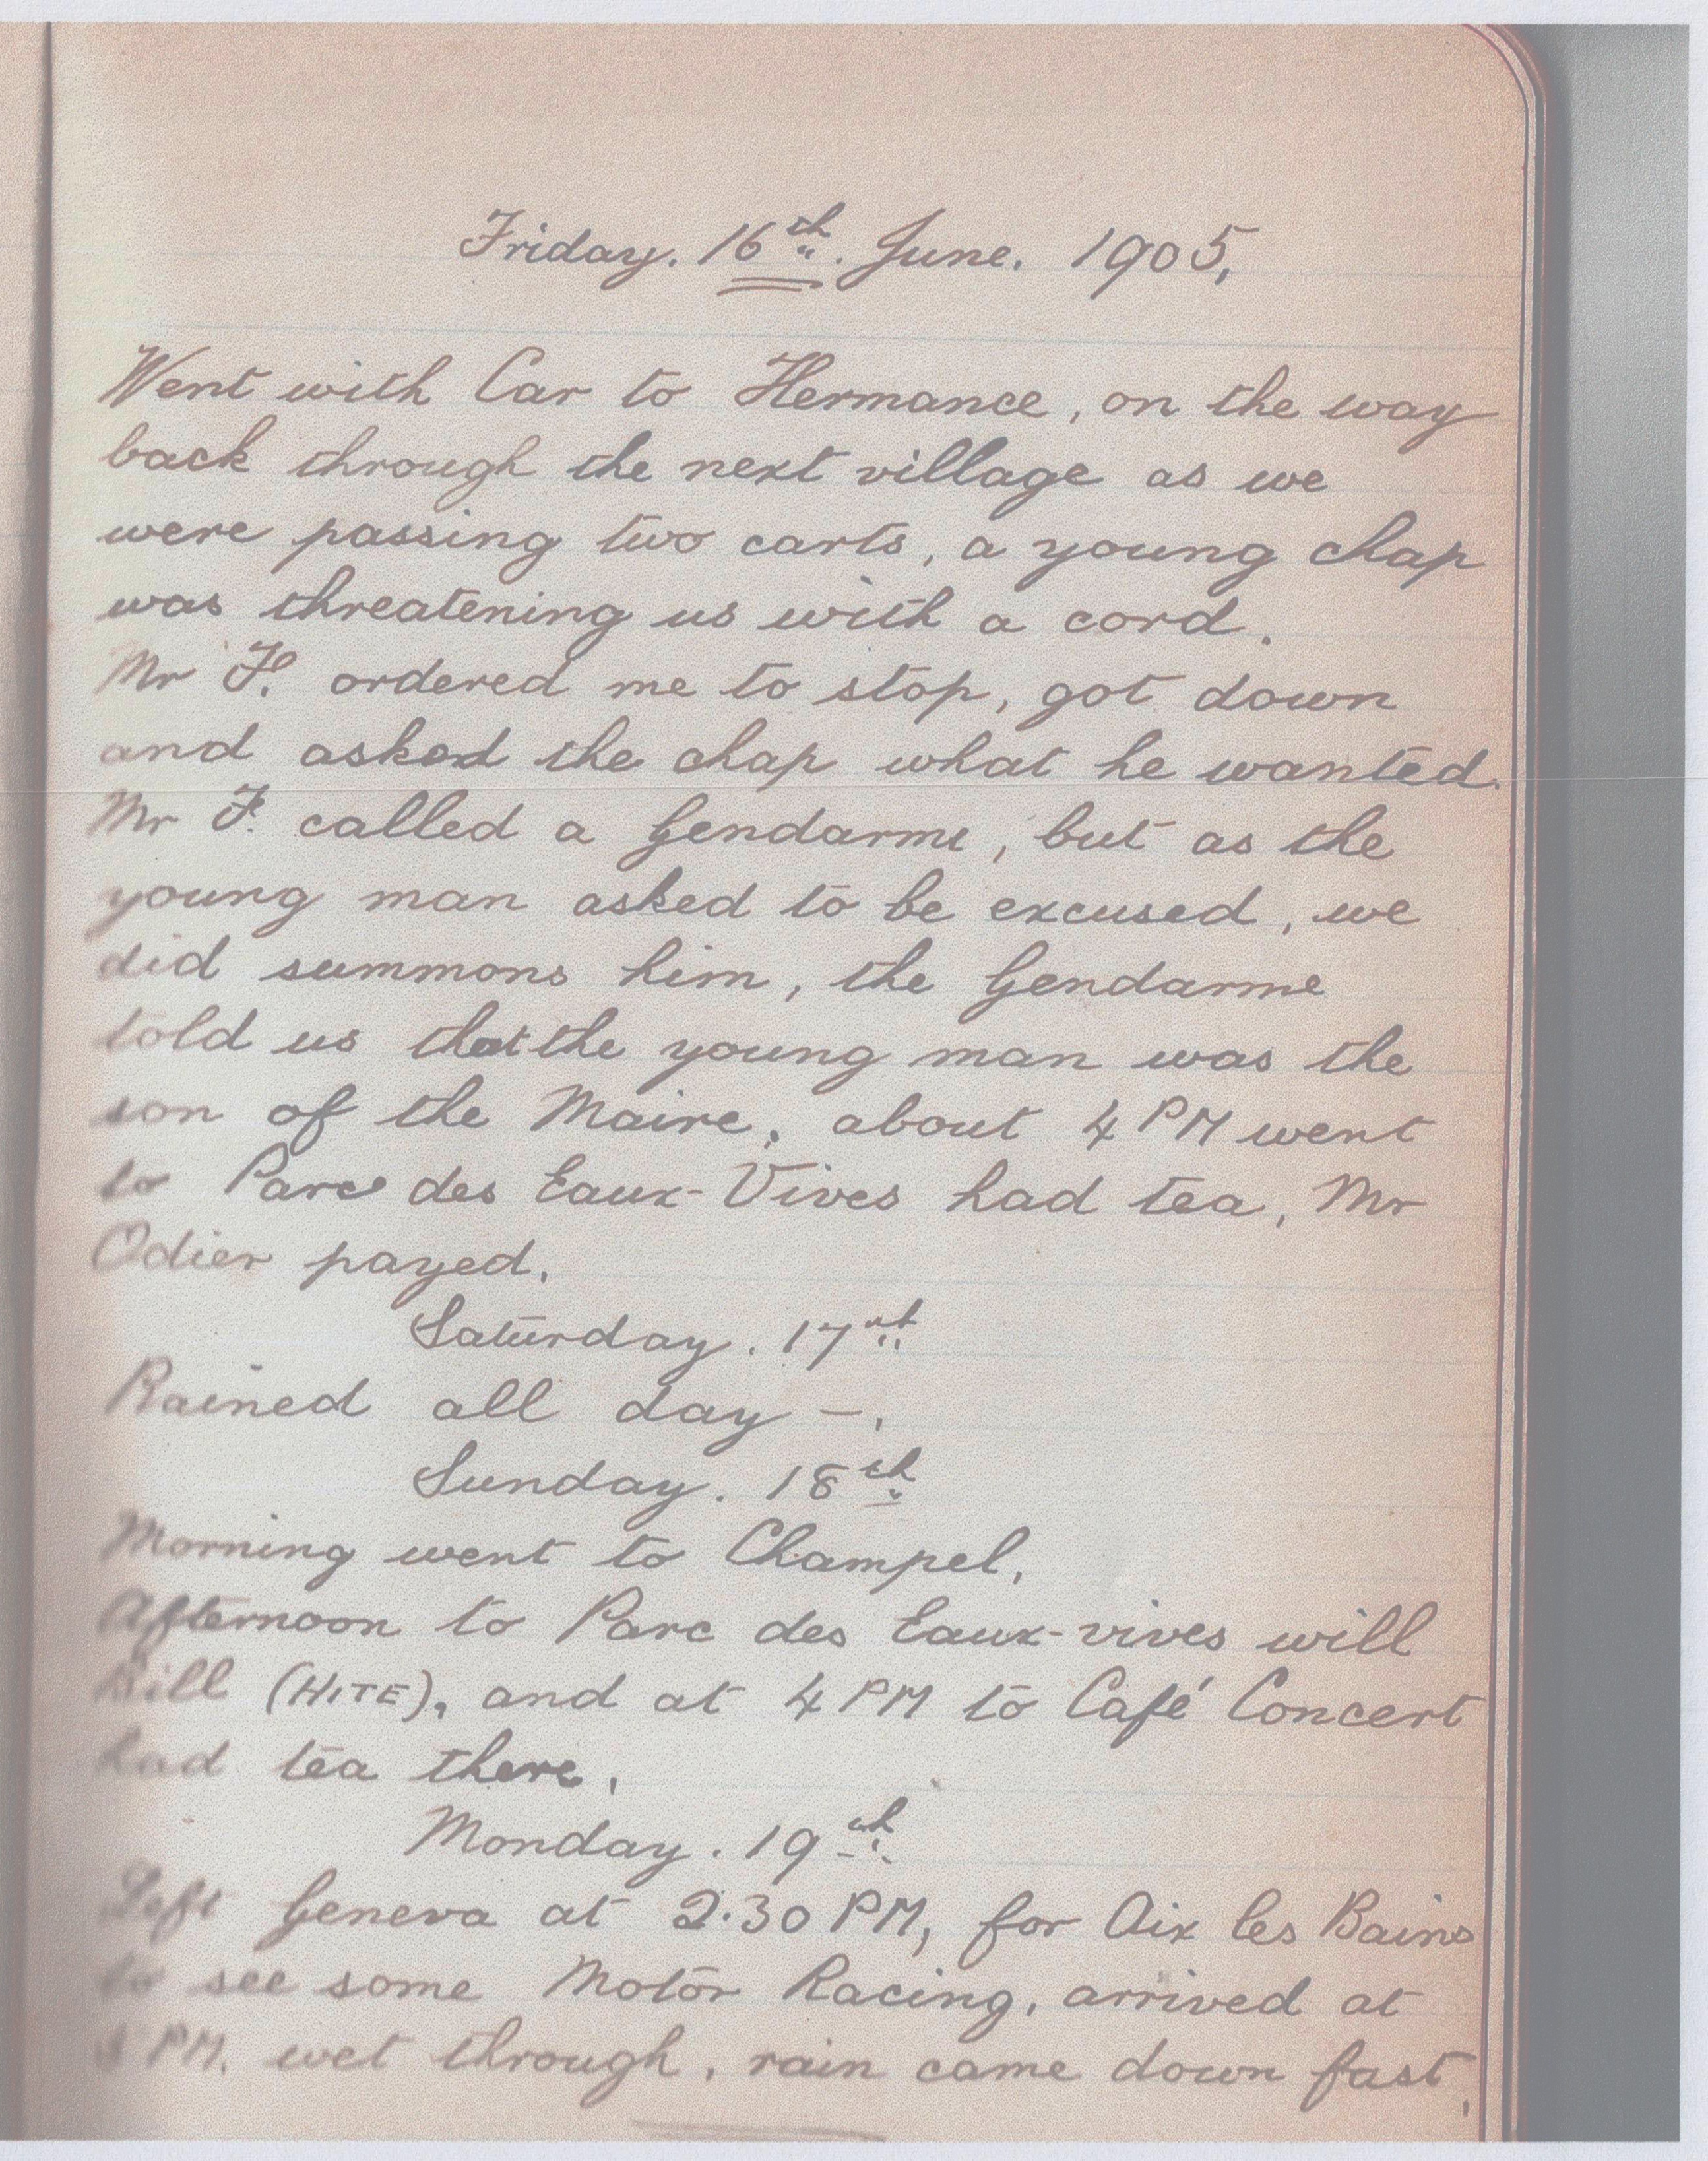 Friday. 16th. June. 1905,
Went with Car to Hermance, on the way
back through the next village as we
were passing two carts, a young chap
was threatening us with a cord.
Mr F. ordered me to stop, got down
and asked the chap what he wanted.
Mr F. called a Gendarme, but as the
young man asked to be excused, we
did summons him, the Gendarme
told us that the young man was the
son of the Maire, about 4 PM went
to Parc des Eaux-Vives had tea, Mr
Odier payed.
Saturday. 17th
Rained all day -.
Sunday. 18th
Morning went to Champel,
Afternoon to Parc des Eaux-vives will
Bill (HITE), and at 4 PM to Café Concert
had tea there,
Monday. 19th
Left Geneva at 2.30 PM, for Aix les Bains
to see some Motor Racing, arrived at
PM. wet through, rain came down fast,